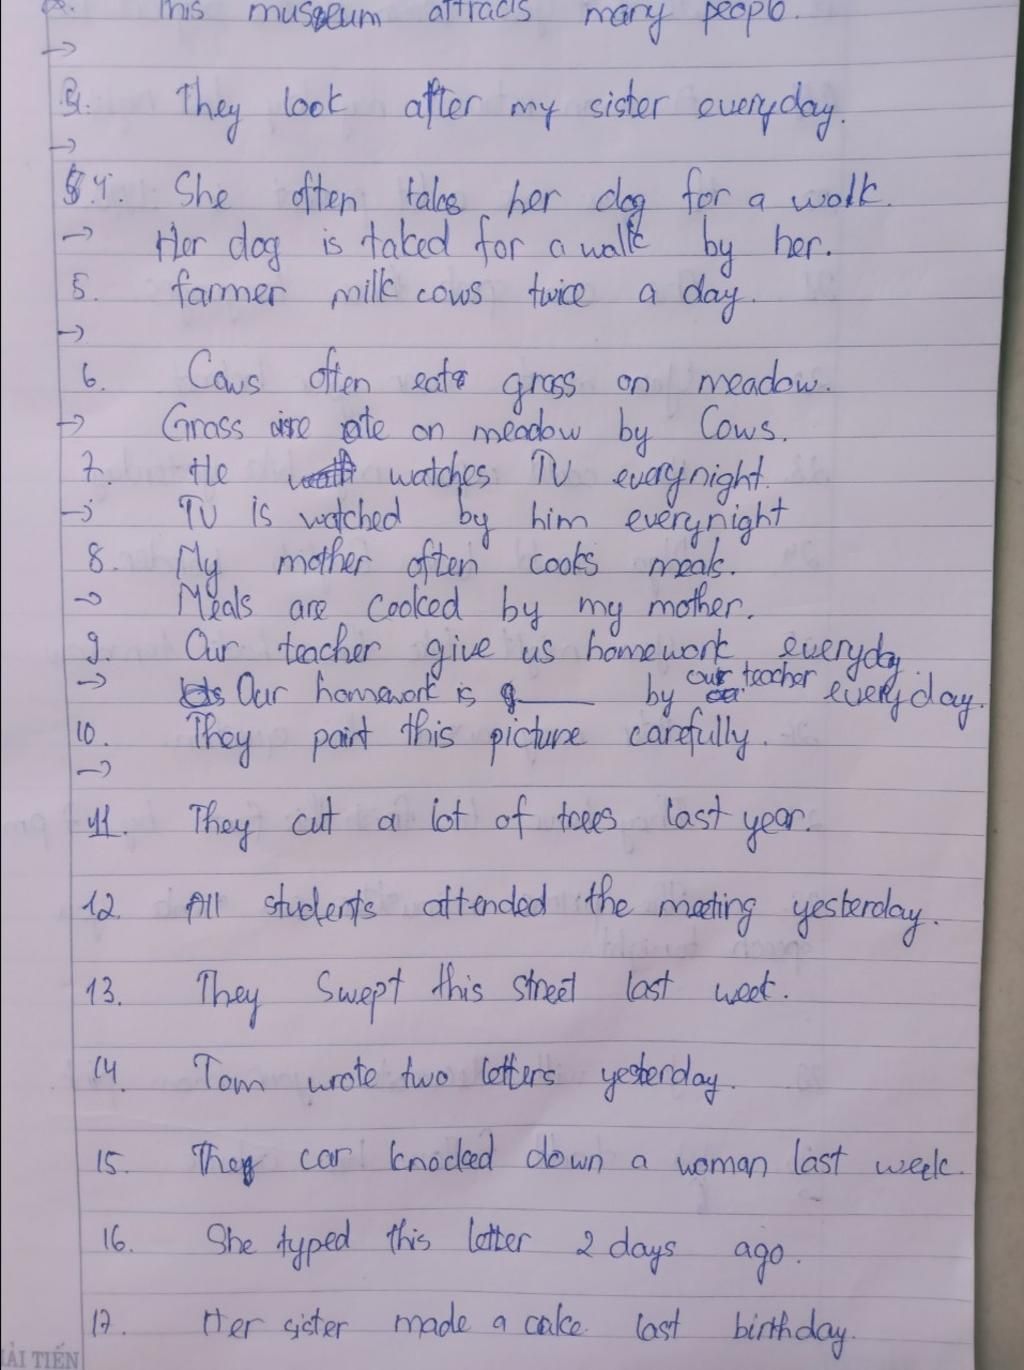 This museum attracts many people.
→
They look after my sister everyday.
→
4. She often takes her dog for a walk.
→ Her dog is taked for a walk by her.
5. farmer milk cows twice a day.
→
6. Cows often eat grass on meadow.
→ Grass are ate on meadow by Cows.
7. He watches TV everynight.
→ TV is watched by him everynight
8. My mother often cooks meals.
→ Meals are cooked by my mother.
9. Our teacher give us homework everyday
→ Our homework is ______ by our teacher everyday.
10. They paint this picture carefully.
→
11. They cut a lot of trees last year.
12. All students attended the meeting yesterday.
13. They swept this street last week.
14. Tom wrote two letters yesterday.
15. They car knocked down a woman last week.
16. She typed this letter 2 days ago.
17. Her sister made a cake last birthday.
HẢI TIẾN